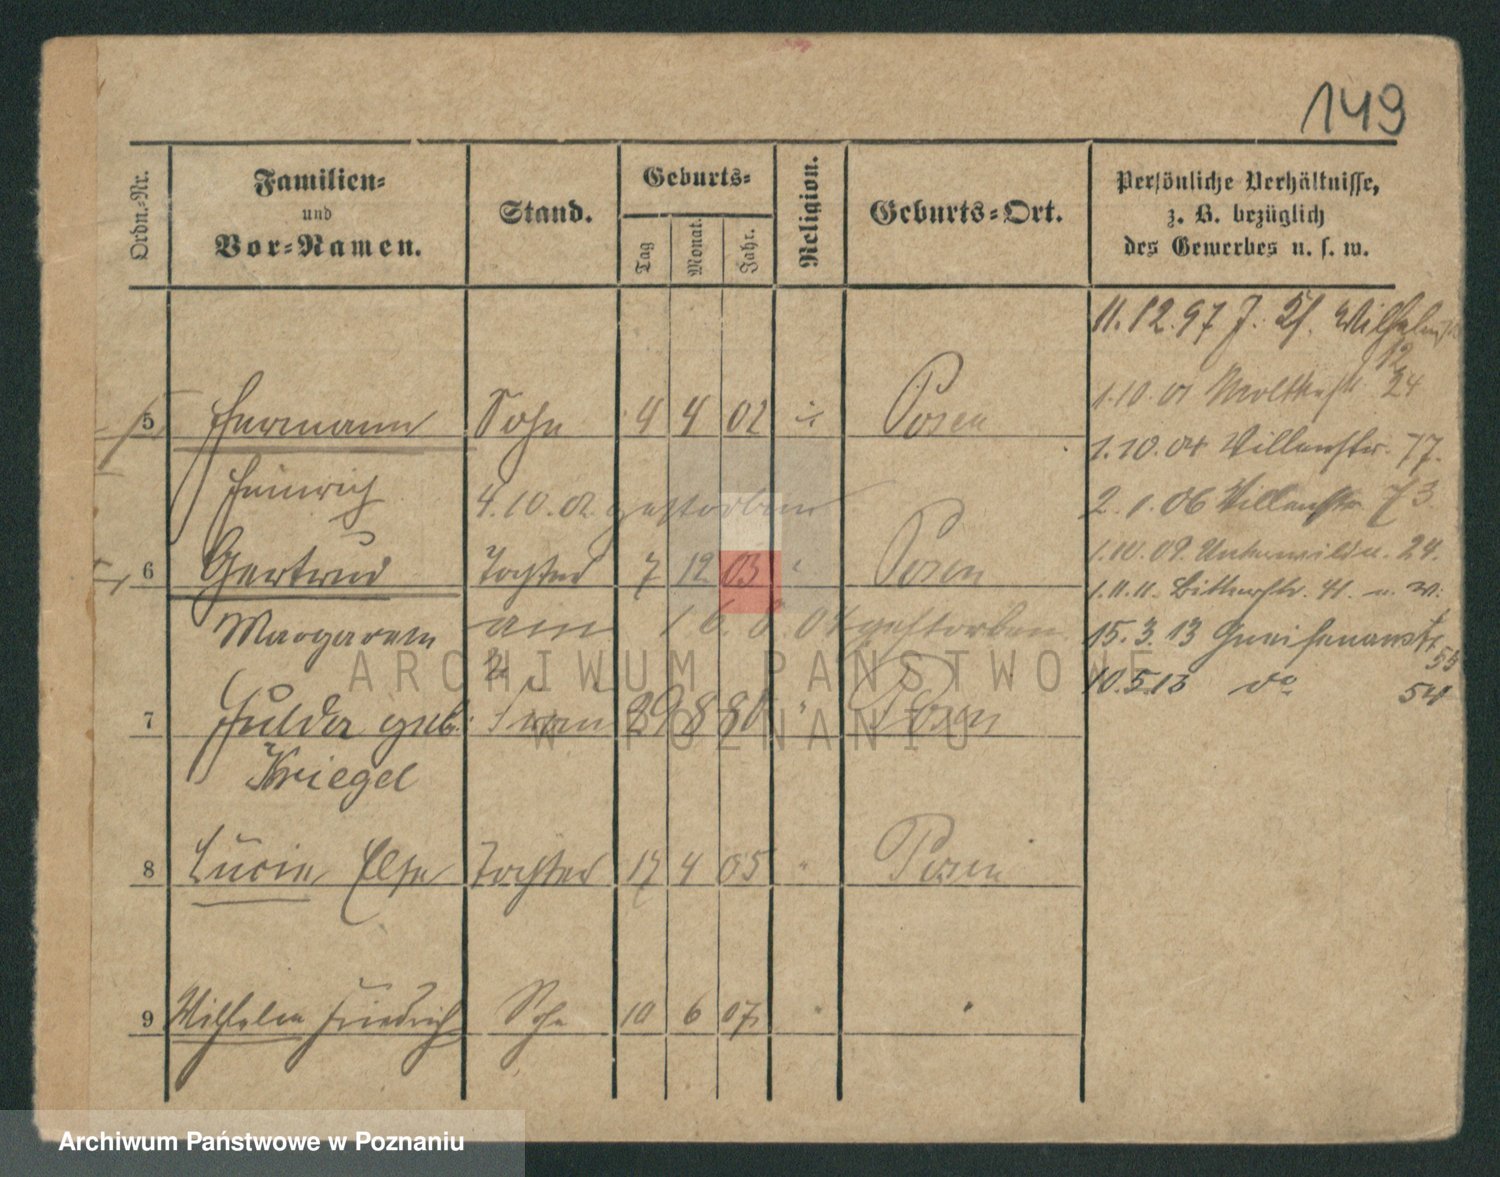 149
Ordn.-Nr.
Familien-
und
Vor-Namen.
Stand.
Geburts-
Tag
Monat.
Jahr.
Religion.
Geburts-Ort.
Persönliche Verhältnisse,
z. B. bezüglich
des Gewerbes u. s. w.
11.12.97 J. St.
12
1.10.01 Moltkestr 24
5 Hermann Sohn 4 4 02 Posen
1.10.04 Villenstr. 77.
Heinrich 4.10.02 gestorben
2.1.06 Villenstr. 73
6 Gertrud Tochter 7 12 03 " Posen
1.10.09. Unterwilda. 24.
1.11.11. Bitterstr.
Margarete am 16.8.04 gestorben
15.3.13 Gneisenaustr.
54
2te
10.5.13 do 54
7 Hulda geb. Frau 29 8 80 " Posen
Kriegel
8 Lucie Else Tochter 17 4 05 " Posen
9 Wilhelm Friedrich Sohn 10 6 07 " "
ARCHIWUM PAŃSTWOWE
W POZNANIU
Archiwum Państwowe w Poznaniu